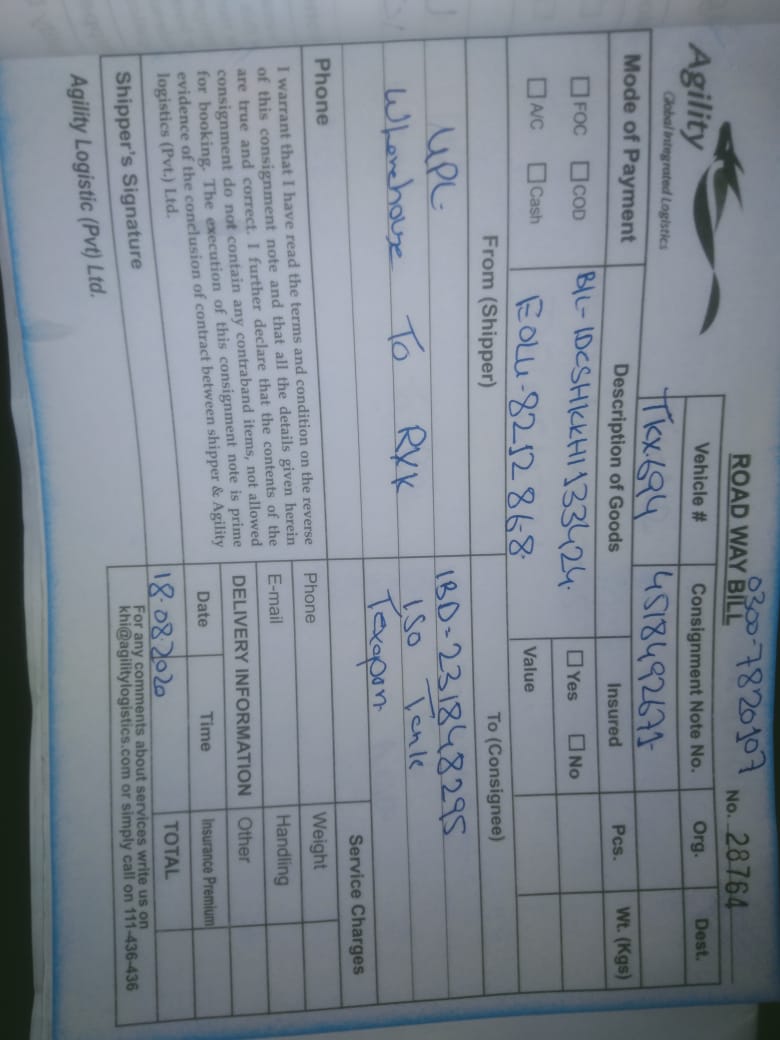 0300-7820107
ROAD WAY BILL
No. 28764
Agility
Global Integrated Logistics
Vehicle #
Consignment Note No.
Org.
Dest.
TKX.694
4518492671
Mode of Payment
Description of Goods
Insured
Pcs.
Wt. (Kgs)
FOC COD
B/L- IDCSHKKHI133424.
Yes No
A/C Cash
EOLU-8212868
Value
From (Shipper)
To (Consignee)
UPL
IBD-231848295
Wherehouse To RYK
ISO Tank
Texapon
Service Charges
Phone
Phone
Weight
I warrant that I have read the terms and condition on the reverse
of this consignment note and that all the details given herein
are true and correct. I further declare that the contents of the
consignment do not contain any contraband items, not allowed
for booking. The execution of this consignment note is prime
evidence of the conclusion of contract between shipper & Agility
logistics (Pvt.) Ltd.
E-mail
Handling
DELIVERY INFORMATION
Other
Date
Time
Insurance Premium
18.08.2020
TOTAL
Shipper's Signature
For any comments about services write us on
khi@agilitylogistics.com or simply call on 111-436-436
Agility Logistic (Pvt) Ltd.